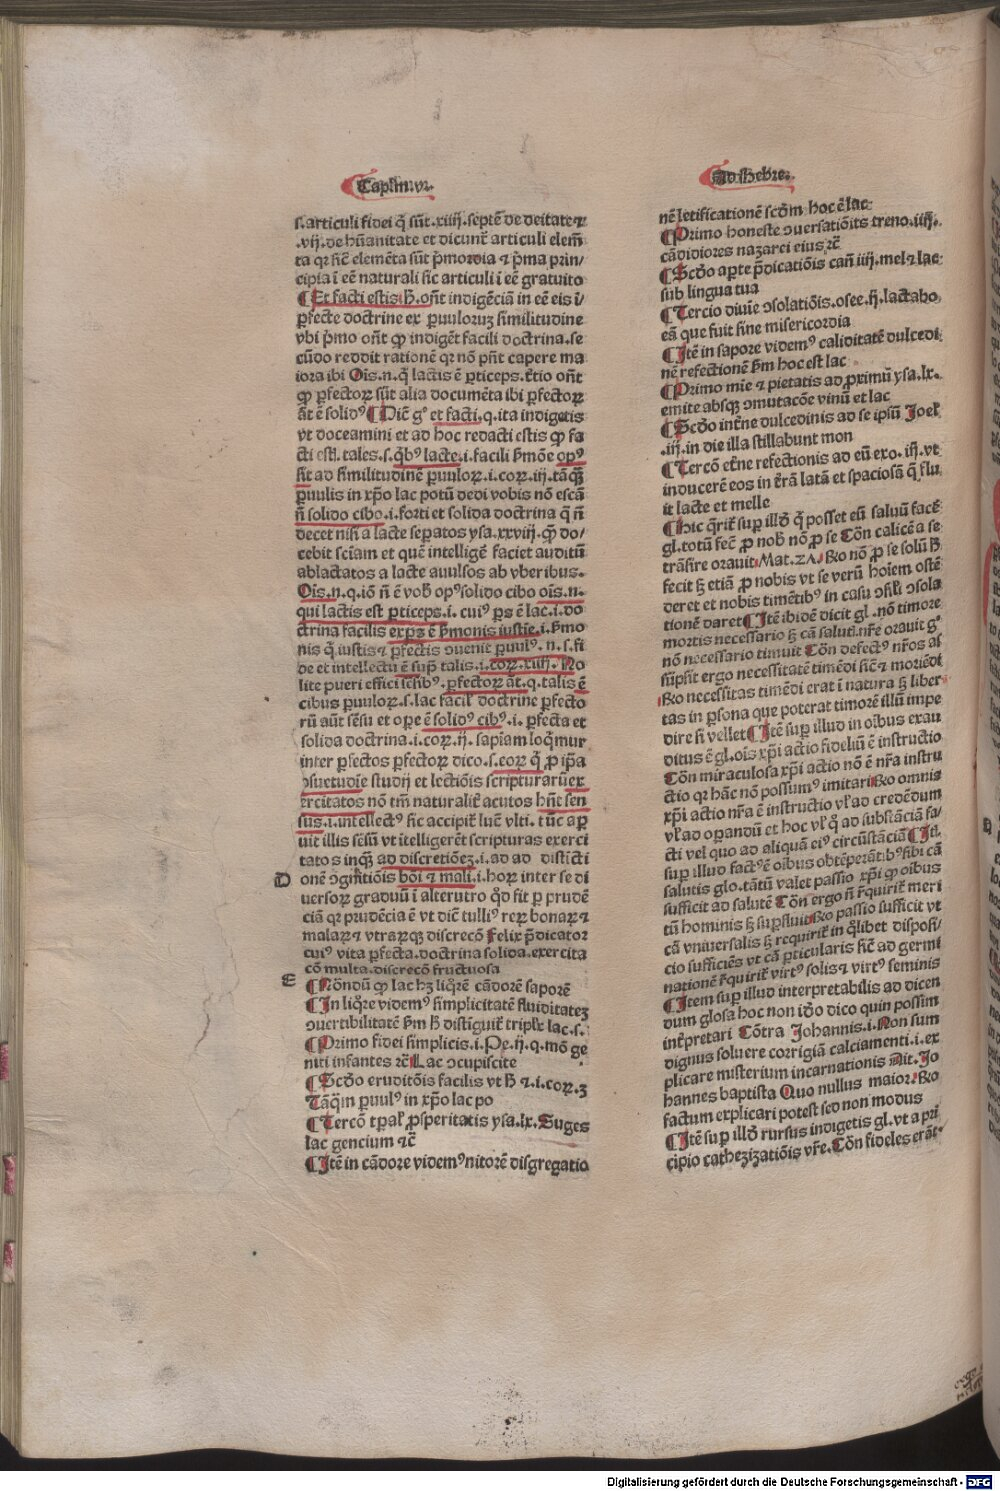 Caplm.vr.
s.articuli fidei q̃ sũt.xiiij.septẽ de deitate ꝛ
.vij.de hũanitate et dicunt̃ articuli elem̃
ta qꝛ sic̃ elemẽta sũt p̃mordia ꝛ p̃ma prin/
cipia ĩ eẽ naturali sic articuli ĩ eẽ gratuito
¶Et facti estis.h̃.on̄t indigẽciã in eẽ eis ĩ/
ꝑfecte doctrine ex ꝑuuloruꝫ similitudine
vbi p̃mo on̄t ꝙ indigẽt facili doctrina.se
cũdo reddit rationẽ qꝛ nõ pñt capere ma
iora ibi Oĩs.n.q̃ lactis ẽ ꝑticeps.t̃tio on̄t
ꝙ ꝑfectoꝝ sũt alia documẽta ibi ꝑfectoꝝ
ãt ẽ solidꝰ ¶Dic̃ gͦ et facti.q.ita indigetis
vt doceamini et ad hoc redacti estis ꝙ fa
cti estꝭ.tales.s.q̃bꝰ lacte.i.facili ẜmõe opꝰ
sit ad similitudinẽ ꝑuuloꝝ.i.coꝝ.iij.tãqꝫ
ꝑuulis in xp̃o lac potũ dedi vobis nõ escã
ñ solido cibo.i.forti et solida doctrina q̃ ñ
decet nisi a lacte seꝑatos ysa.xxviij.qʒ do/
cebit scĩam et quẽ intelligẽ faciet auditũ
ablactatos a lacte auulsos ab vberibus.
Oĩs.n.q.iõ ñ ẽ vob̃ opꝰsolido cibo oĩs.n.
qui lactis est ꝑticeps.i.cuiꝰ ꝑs ẽ lac.i.do
ctrina facilis exꝑs ẽ ẜmonis iustic̃.i.ẜmo
nis q̃ iustis ꝛ ꝑfectis ꝯuenit ꝑuulꝰ.n.s.fi
de et intellectu ẽ sup̃ talis.i.coꝝ.xiiij.No
lite pueri effici sensibꝰ.ꝑfectoꝝ ãt.q.talis ẽ
cibus ꝑuuloꝝ.s.lac facil̃ doctrine ꝑfecto
rũ aũt sẽsu et oꝑe ẽ solidꝰ cibꝰ.i.ꝑfecta et
solida doctrina.i.coꝝ.ij.sapĩam loq̃mur
inter ꝑfectos ꝑfectoꝝ dico.s.eoꝝ q̃ ꝓ ip̃a
ꝯsuetudĩe studij et lectiõis scripturarũ ex
ercitatos nõ tm̃ naturalit̃ acutos hñt sen
sus.i.intellectꝰ sic accipit̃ luc̃ vlti.tũc aꝑ
uit illis sẽsũ vt ĩtelligerẽt scripturas exerci
tatos inq̃ʒ ad discretiõeʒ.i.ad ad distĩcti
D
onẽ ꝯgnitiõis boĩ ꝛ mali.i.hoꝝ inter se di
uersoꝝ graduũ ĩ alterutro q̃d fit ꝑ prudẽ
ciã qꝛ prudẽcia ẽ vt dic̃ tulliꝰ reꝝ bonaꝝ ꝛ
malaꝝ ꝛ vtraꝝqʒ discrecõ Felix p̃dicator
cuiꝰ vita ꝑfecta.doctrina solida.exercita
cõ multa.discrecõ fructuosa
E
¶Nõndũ ꝙ lac hʒ liq̃rẽ cãdorẽ saporẽ
¶In liq̃re videmꝰ simplicitatẽ fluiditateʒ
ꝯuertibilitatẽ ẜm h̃ distĩguit̃ triplex lac.s.
¶Primo fidei simplicis.i.Pe.ij.q.mõ ge
niti infantes ꝛc̃ Lac ꝯcupiscite
¶Scd̃o eruditõis facilis vt h̃ ꝛ.i.coꝝ.3
Tãq̃m ꝑuulꝰ in xp̃o lac po
¶Tercõ tꝑal̃ ꝓsperitatis ysa.lx.Suges
lac gencium ꝛc̃
¶Itẽ in cãdore videmꝰ nitorẽ disgregatio
Ad Hebre.
nẽ letificationẽ scd̃m hoc ẽ lac
¶Primo honeste ꝯuersatiõis treno.iiij.
cãdidiores nazarei eius ꝛc̃
¶Scd̃o aperte p̃dicatiõis cañ iiij.mel ꝛ lac
sub lingua tua
¶Tercio diuĩe ꝯsolatiõis.osee.ij.lactabo
eã que fuit sine misericordia
¶Itẽ in sapore videmꝰ caliditatẽ dulcedi
nẽ refectionẽ ẜm hoc est lac
¶Primo mĩe ꝛ pietatis ad ꝓximũ ysa.lx.
emite absqʒ ꝯmutacõe vinũ et lac
¶Scd̃o int̃ne dulcedinis ad se ip̃sũ Joel
.iij.in die illa stillabunt mon
¶Tercõ et̃ne refectionis ad eũ exo.iij.vt
inducerẽ eos in t̃rã latã et spaciosã q̃ flu
it lacte et melle
¶Hic q̃rit̃ suꝑ illd̃ q̃ posset eũ saluũ facẽ
gl.totũ fec̃ ꝓ nob̃ nõ ꝓ se Cõn calicẽ a se
trãsire orauit Mat.2Λ.Ro nõ ꝓ se solũ h̃
fecit ẜ etiã ꝓ nobis vt se verũ hoĩem ostẽ
deret et nobis timẽtibꝰ in casu ꝯsil̃i ꝯsola
tionẽ daret ¶Itẽ ibidẽ dicit gl.nõ timore
mortis necessario ẜ cã saluti.nr̃e orauit gͦ
nõ necessario timuit Cõn defectꝰ nr̃os as
sũpsit ergo necessitatẽ timẽdi sic̃ ꝛ moriẽdi
Ro necessitas timẽdi erat ĩ natura ẜ liber
tas in ꝑsona que poterat timorẽ illũ impe
dire si vellet ¶Itẽ suꝑ illud in oĩbus exau
ditus ẽ gl.oĩs xp̃i actio fideliũ ẽ instructio
Cõn miraculosa xp̃i actio nõ ẽ nr̃a instru
ctio qꝛ hãc nõ possumꝰ imitari Ro omnis
xp̃i actio nr̃a ẽ instructio vl̃ ad credẽdum
vl̃ ad oꝑandũ et hoc vl̃ q̃ ad substãciã fa/
cti vel quo ad aliquã eiꝰ circũstãciã ¶Itẽ
suꝑ illud factꝰ ẽ oĩbus obtẽꝑãtibꝰ sibi cã
salutis glo.tãtũ valet passio xp̃i ꝙ oĩbus
sufficit ad salutẽ Cõn ergo ñ r̃quirit̃ meri
tũ hominis ẜ suꝑfluit Ro passio sufficit vt
cã vniuersalis ẜ requirit̃ in q̃libet disposi/
cio sufficiẽs vt cã ꝑticularis sic̃ ad germi
nationẽ r̃quirit̃ virtꝰ solis ꝛ virtꝰ seminis
¶Item suꝑ illud interpretabilis ad dicen
dum glosa hoc non id̃o dico quin possim
int̃pretari Cõtra Johannis.i.Non sum
dignus soluere corrigiã calciamenti.i.ex
plicare misterium incarnationis Ait.Jo
hannes baptista Quo nullus maior.Ro
factum explicari potest sed non modus
¶Itẽ suꝑ illd̃ rursus indigetis gl.vt a pri
cipio cathezizatiõis vr̃e.Cõn fideles erãt
Digitalisierung gefördert durch die Deutsche Forschungsgemeinschaft - DFG